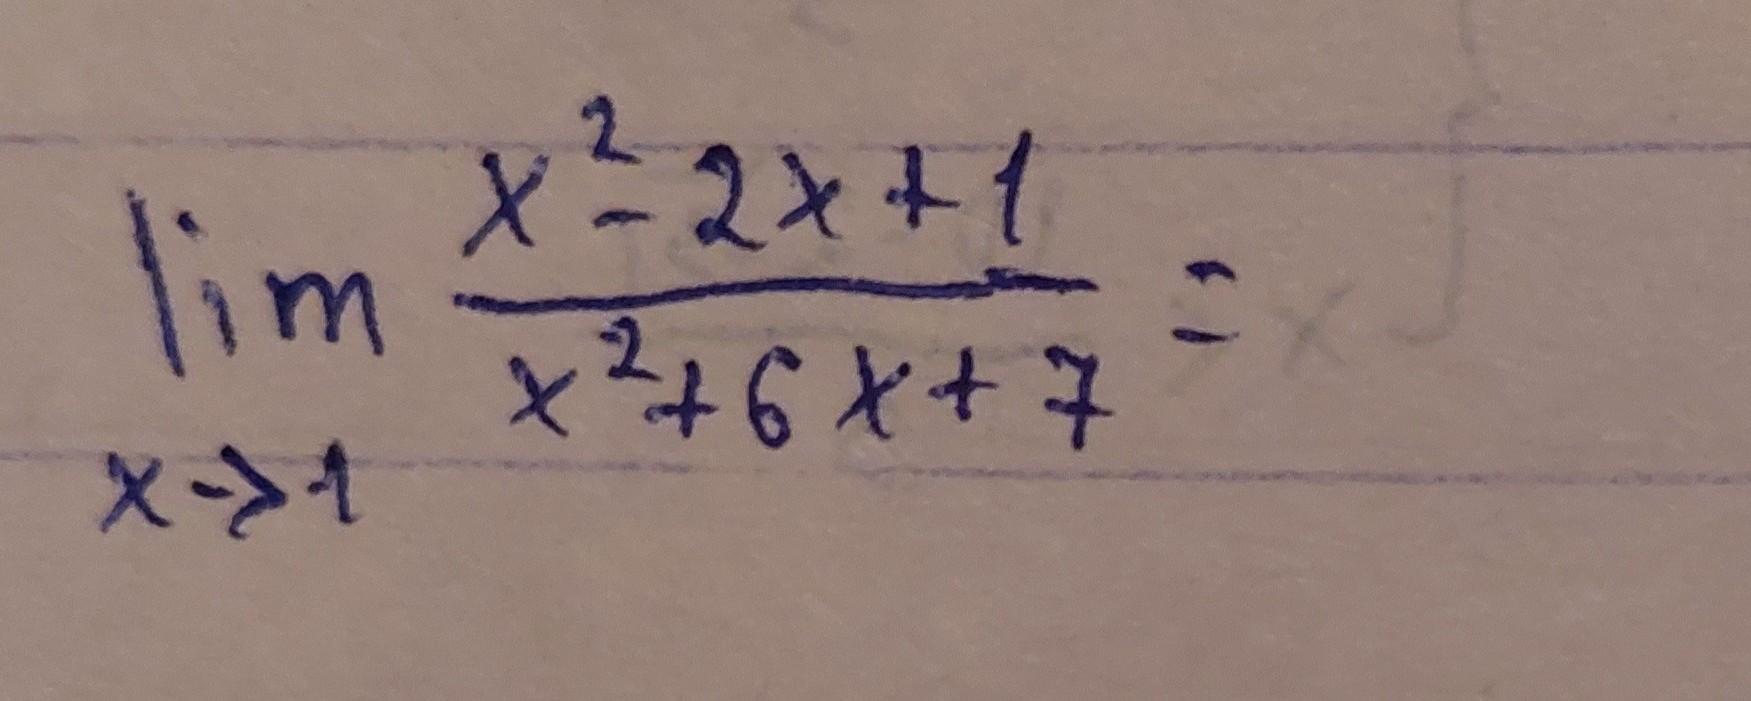 lim x→1 (x² - 2x + 1)/(x² + 6x + 7) =